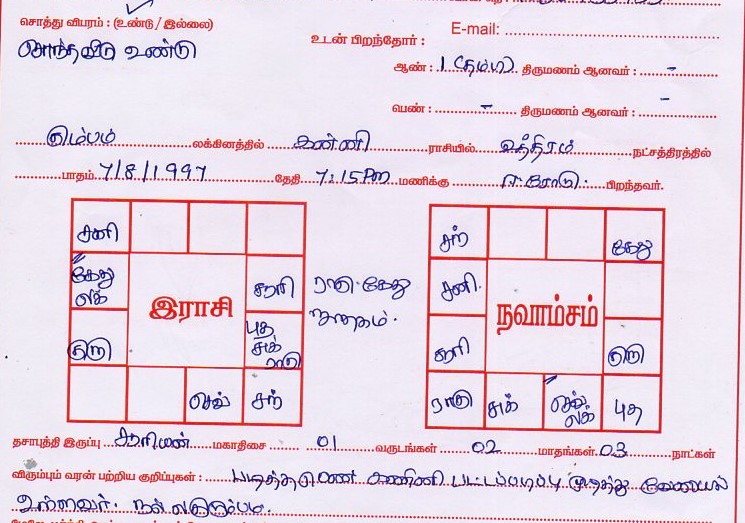 சொத்து விபரம் : (உண்டு / இல்லை)
சொந்தவீடு உண்டு
உடன் பிறந்தோர் :
E-mail:
ஆண் : 1 (தம்பி) திருமணம் ஆனவர் : -
பெண் : - திருமணம் ஆனவர் : -
கும்பம் லக்கினத்தில் கன்னி ராசியில் உத்திரம் நட்சத்திரத்தில்
பாதம் 7/8/1997 தேதி 7:15PM மணிக்கு ஈரோடு பிறந்தவர்.
சனி
கேது
லக்
குரு
சூரி
புத
சுக்
ராகு
செவ்
சந்
இராசி
ராகு கேது
ஜாதகம்.
சந்
கேது
சனி
சூரி
குரு
ராகு
சுக்
செவ்
லக்
புத
நவாம்சம்
தசாபுத்தி இருப்பு சூரியன் மகாதிசை 01 வருடங்கள் 02 மாதங்கள் 03 நாட்கள்
விரும்பும் வரன் பற்றிய குறிப்புகள் : படித்த மண கணினி பட்டப்படிப்பு முடித்து வேலையில்
உள்ளவர். நல் குடும்பம்.